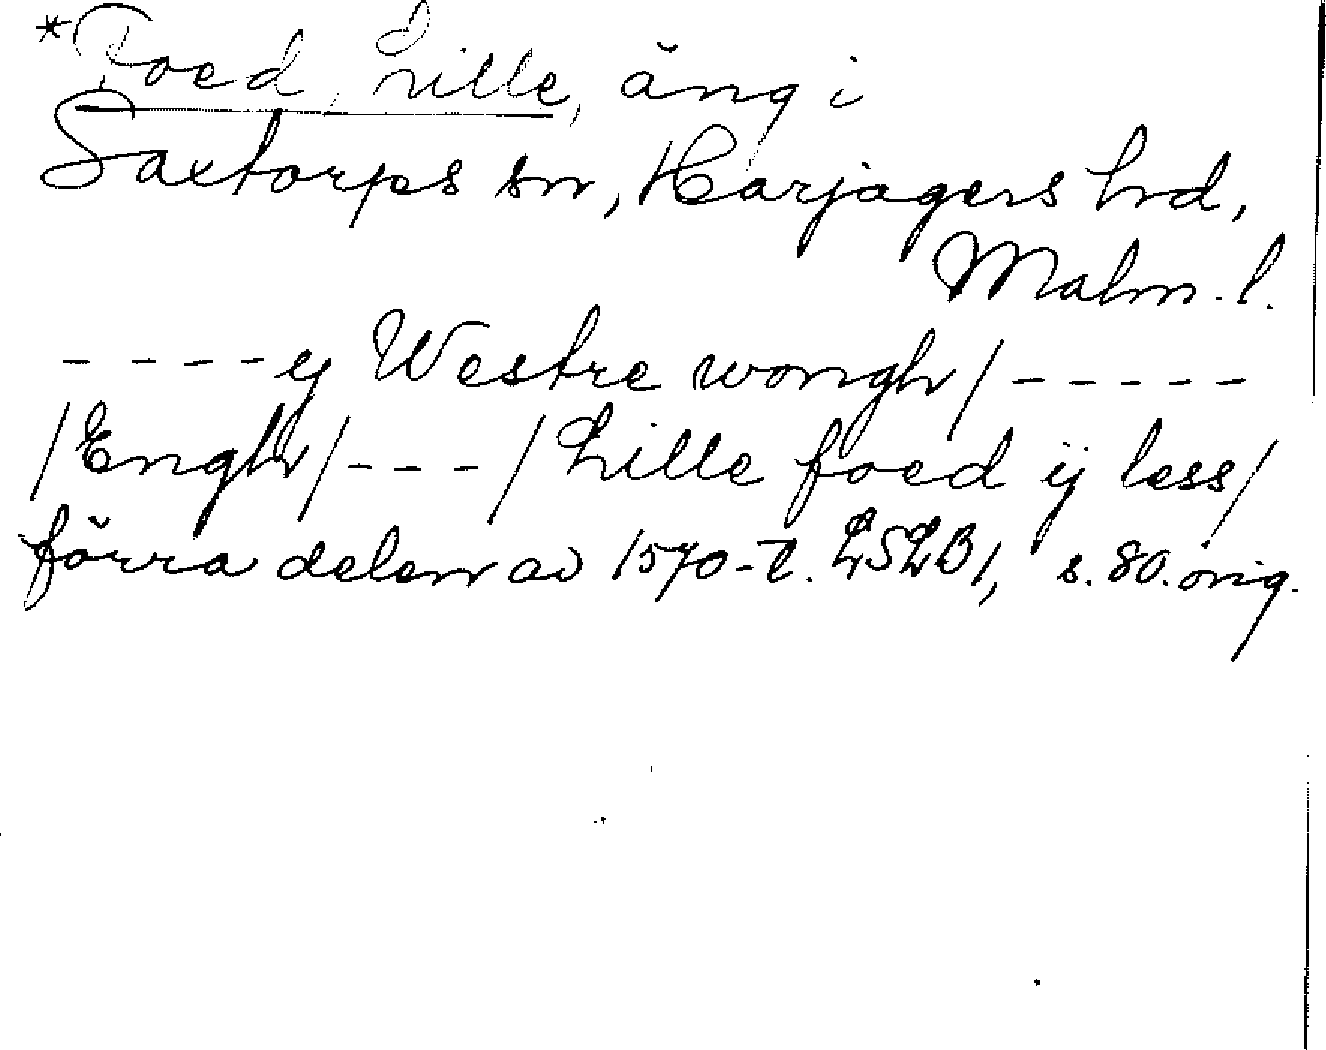 *Foed, Lille, äng i
Saxtorps sn, Harjagers hd,
Malm. l.
- - - - ij Westre wongh/ - - - - -
/Engh/ - - - /Lille foed ij less/
förra delen av 1570-t. LSLB1, s. 80. orig.